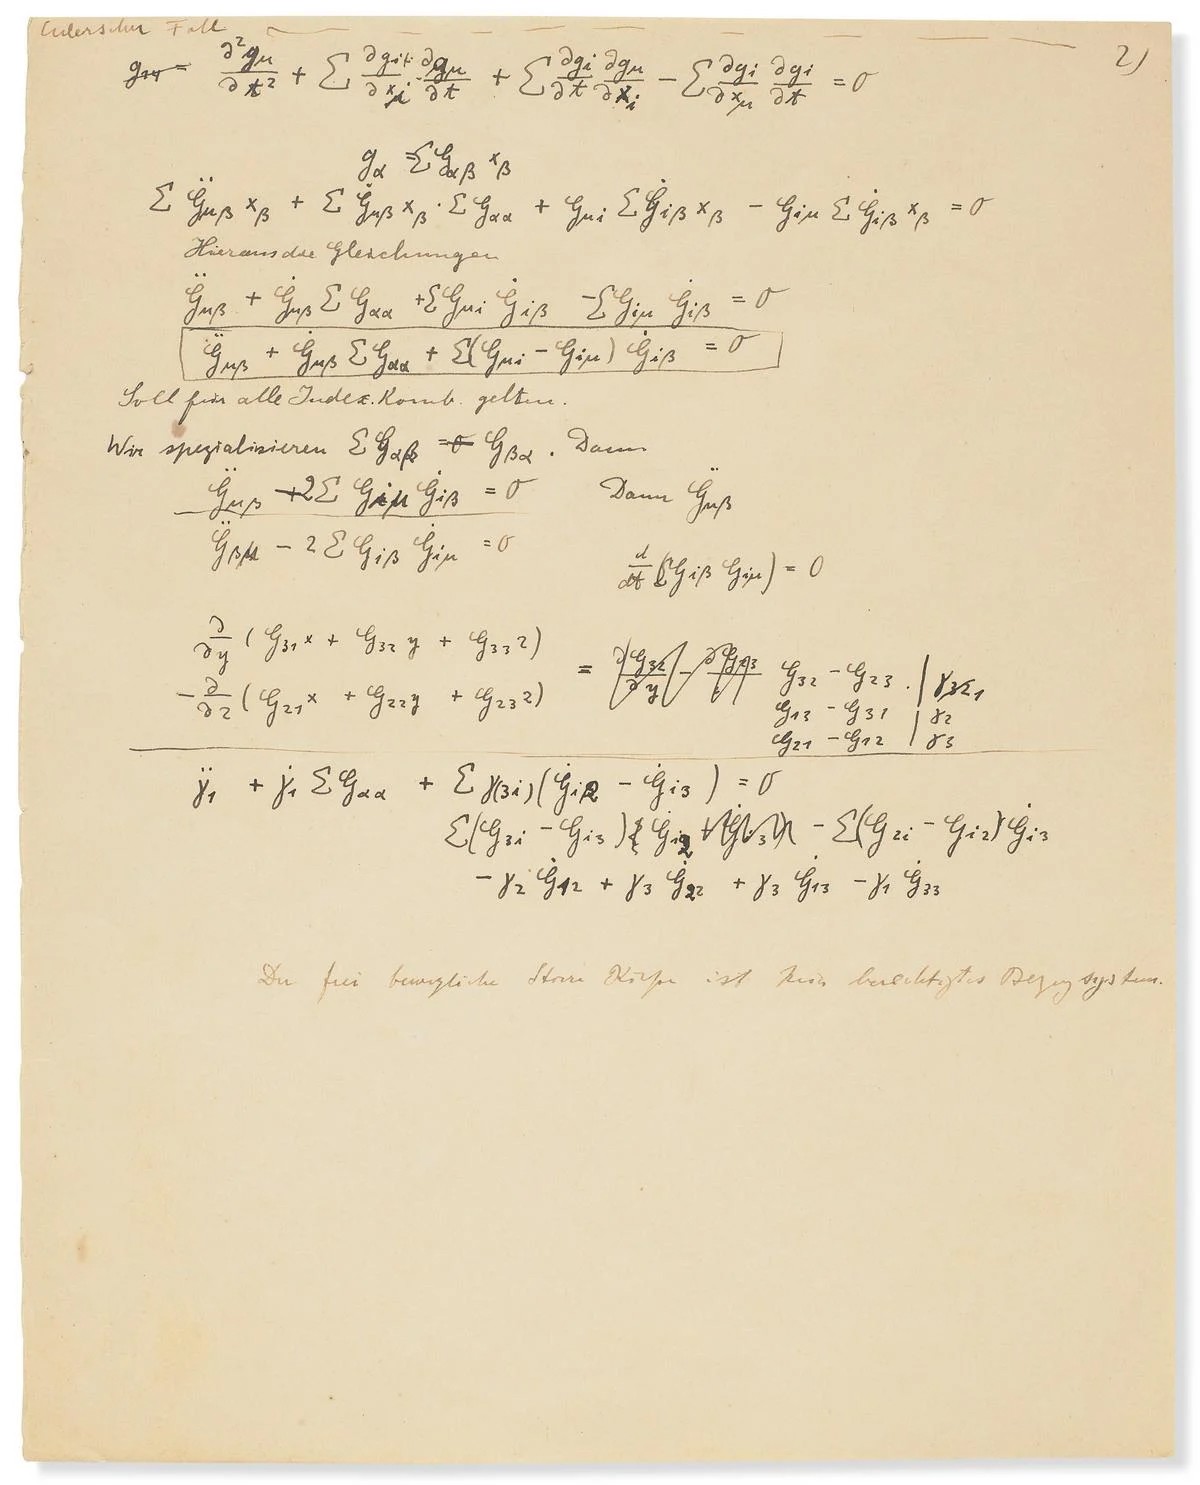 Eulerscher Fall
2)
∂²gμ/∂t² + Σ ∂gi/∂xi ∂gμ/∂t + Σ ∂gi/∂t ∂gμ/∂xi − Σ ∂gi/∂xμ ∂gi/∂t = 0
gα = Σ Gαβ xβ
Σ G̈μβ xβ + Σ Ġμβ xβ · Σ Gαα + Gμi Σ Ġiβ xβ − Giμ Σ Ġiβ xβ = 0
Hieraus die Gleichungen
G̈μβ + Ġμβ Σ Gαα + Σ Gμi Ġiβ − Σ Giμ Ġiβ = 0
G̈μβ + Ġμβ Σ Gαα + Σ(Gμi − Giμ) Ġiβ = 0
Soll für alle Index-Komb. gelten.
Wir spezialisieren Σ Gαβ = 0 Gβα. Dann
G̈μβ +2 Σ Giμ Ġiβ = 0 Dann G̈μβ
G̈βμ − 2 Σ Giβ Ġiμ = 0
d/dt (Σ Giβ Giμ) = 0
∂/∂y (G31 x + G32 y + G33 z)
− ∂/∂z (G21 x + G22 y + G23 z) = G32 − G23 . | γ1
G13 − G31 | γ2
G21 − G12 | γ3
γ̈1 + γ̇1 Σ Gαα + Σ γ(3i) (Ġi2 − Ġi3) = 0
Σ(G3i − Gi3) Ġi2 − Σ(G2i − Gi2) Ġi3
− γ2 Ġ12 + γ3 Ġ22 + γ3 Ġ13 − γ1 Ġ33
Der frei bewegliche starre Körper ist kein berechtigtes Bezugsystem.